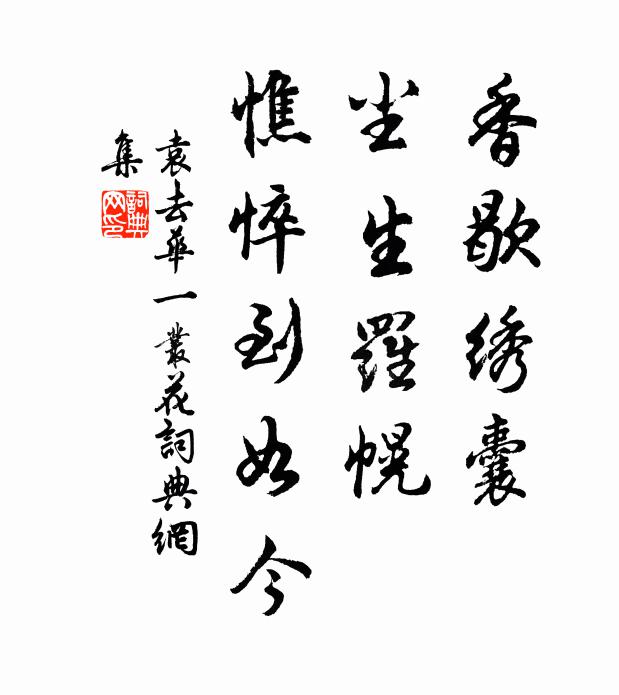 香歇绣囊
尘生羅幌
憔悴到如今
袁去華一叢花詞典網
集
詞典网印